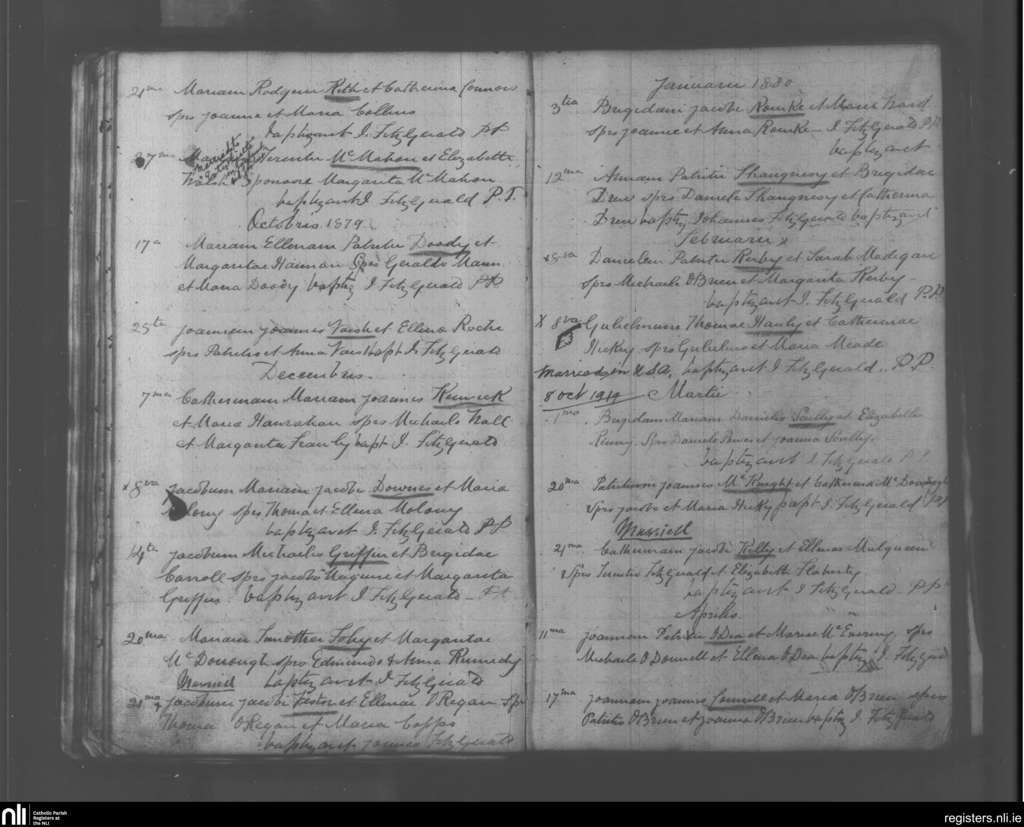 21ma Mariam Rodgeri Kelly et Catherina Connors
sprs Joanne et Maria Collins
baptizavit I. FitzGerald PP
27ma Terentii McMahon et Elizabetha
Walsh Sponsore Margarita McMahon
baptizavit I FitzGerald P.P.
Octobris 1879
17a Mariam Ellenam Patritii Doody et
Margaritae Hannan Sprs Geraldo Mann
et Maria Doody baptiz I FitzGerald PP
25ta Joannem Joannis et Ellena Roche
sprs Patritio et Anna bapt I FitzGerald
Decembris.
7ma Catherinam Mariam Joannis
et Maria Hanrahan sprs Michaele Wall
et Margarita bapt I. FitzGerald
x 8va Jacobum Mariam Jacobi Downes et Maria
Molony sprs Thoma et Ellena Molony
baptizavit I. FitzGerald PP
14ta Jacobum Michaelis Griffin et Brigidae
Carroll sprs Jacobo Maguire et Margarita
Griffin. baptizavit I. FitzGerald
20ma Mariam Timothei et Margaritae
McDonough sprs Edmundo & Anna Kennedy
Married baptizavit I FitzGerald
21ma Jacobum Jacobi et Ellenae O'Regan Sprs
Thoma O'Regan et Maria Copps
baptizavit Joannes FitzGerald
Januarii 1880
3tia Brigidam Jacobi Rourke et Maria Ward
sprs Joanne et Anna Rourke I FitzGerald PP
baptizavit
12ma Annam Patritii Shaugnessy et Brigidae
Drew sprs Daniele Shaugnessy et Catherina
Drew baptiz Johannes FitzGerald baptizavit
Februarii
x 8va Danielem Patritii Kerby et Sarah Madigan
sprs Michaele O'Brien et Margarita Kerby
baptizavit I. FitzGerald P.P.
X 8va Gulielmum Thomae Hanly et Catherinae
Hickey sprs Gulielmo et Maria Meade
Married in U.S.A. baptizavit I FitzGerald. P.P.
8 Oct 1919 Martii
1ma Brigidam Mariam Danielis Scully et Elizabetha
Sprs Daniele Power et Joanna Scully.
baptizavit I FitzGerald P.P.
20ma Patritium Joannis McKnight et Catherina McDonough
sprs Jacobo et Maria Hickey bapt I. FitzGerald PP
Married
21ma Catherinam Jacobi Kelly et Ellenae Mulqueen
Sprs Terentio FitzGerald et Elizabeth Flaherty
baptizavit I FitzGerald. PP
Aprilis.
11ma Joannam O'Dea et Mariae McEnerny sprs
Michaele O'Donnell et Ellena O'Dea baptiz I. FitzGerald
17ma Joannam Joannis Connell et Maria O'Brien sprs
Patritio O'Brien et Joanna O'Brien baptiz I FitzGerald
nli
Catholic Parish
Registers at
the NLI
registers.nli.ie